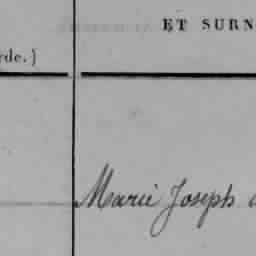 ET SURN
rde.)
Marie Joseph